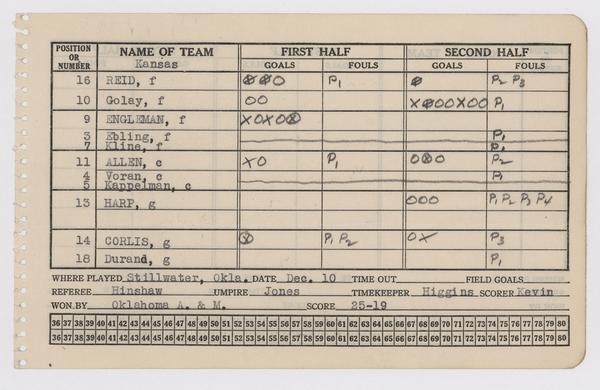 POSITION OR NUMBER NAME OF TEAM FIRST HALF SECOND HALF
Kansas GOALS FOULS GOALS FOULS
16 REID, f P1 P2 P3
10 Golay, f OO P1
9 ENGLEMAN, f
3 Ebling, f P1
7 Kline, f P1
11 ALLEN, c XO P1 P2
4 Voran, c P1
5 Kappelman, c
13 HARP, g OOO P1 P2 P3 P4
14 CORLIS, g P1 P2 OX P3
18 Durand, g P1
WHERE PLAYED Stillwater, Okla. DATE Dec. 10 TIME OUT FIELD GOALS
REFEREE Hinshaw UMPIRE Jones TIMEKEEPER Higgins SCORER Kevin
WON BY Oklahoma A. & M. SCORE 25-19
36 37 38 39 40 41 42 43 44 45 46 47 48 49 50 51 52 53 54 55 56 57 58 59 60 61 62 63 64 65 66 67 68 69 70 71 72 73 74 75 76 77 78 79 80
36 37 38 39 40 41 42 43 44 45 46 47 48 49 50 51 52 53 54 55 56 57 58 59 60 61 62 63 64 65 66 67 68 69 70 71 72 73 74 75 76 77 78 79 80